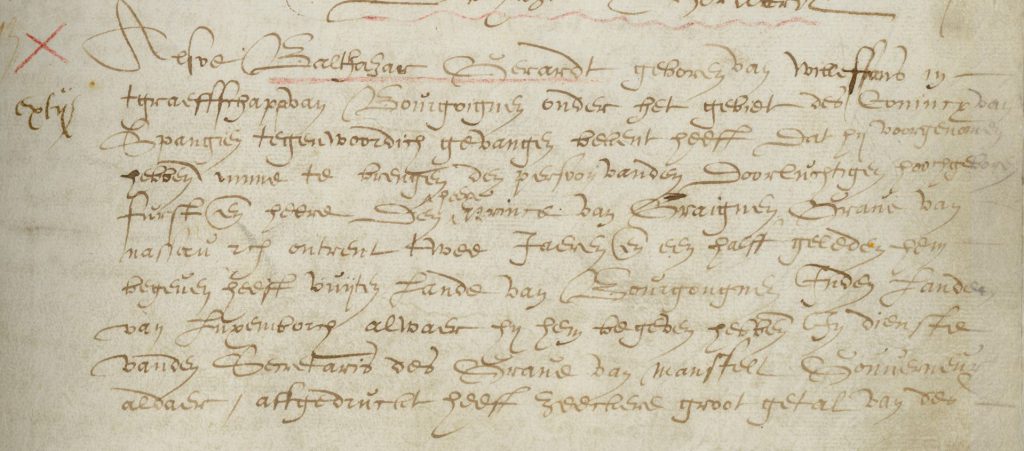 Alsoe Balthazar Gerardt geboren van Willeffans in
tgraeffschap van Bourgoignen onder het gebiet des Conincx van
Spangien tegenwoordich gevangen bekent heeft Dat hy voorgenomen
hebben umme te brengen den persoon vanden Doorluchtigen hoochgeboren
furst en heere Den heere Prince van Oraignen Grave van
nassau etc ontrent twee Jaeren en een halff geleden hem
begeven heeft vuyten Lande van Bourgougnen Inden Lande
van Luxemborch alwaer hy hem begeven hebben In dienste
vanden Secretaris des Grave van Mansfelt Gouverneur
aldaer / affgedruckt heeft zeeckere groot getal van den